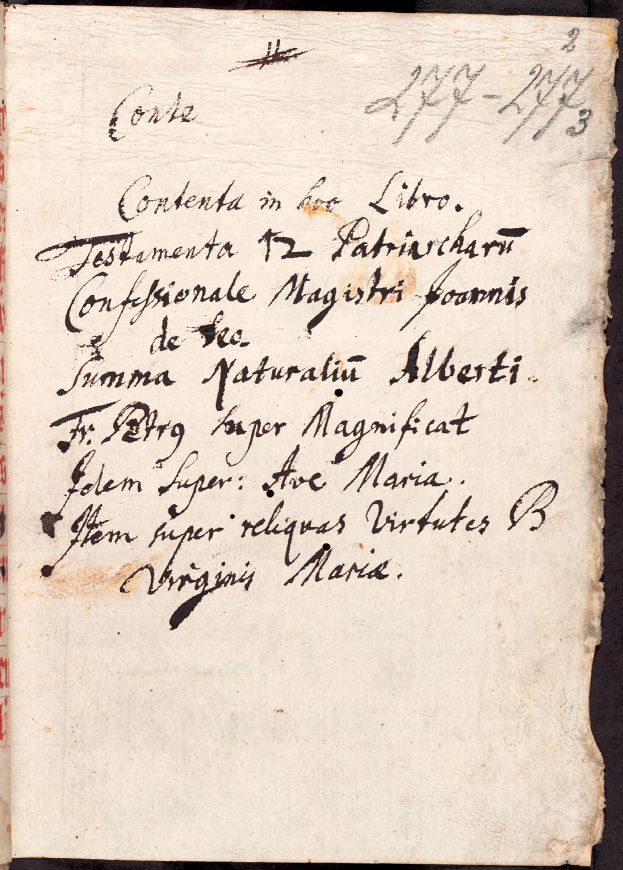 2
277-277
3
Conte
Contenta in hoc Libro.
Testamenta 12 Patriarcharū
Confessionale Magistri Joannis
de Leo.
Summa Naturaliū Alberti.
Fr. Petrꝰ super Magnificat
Idem super: Ave Maria.
Item super reliquas Virtutes B
Virginis Mariæ.